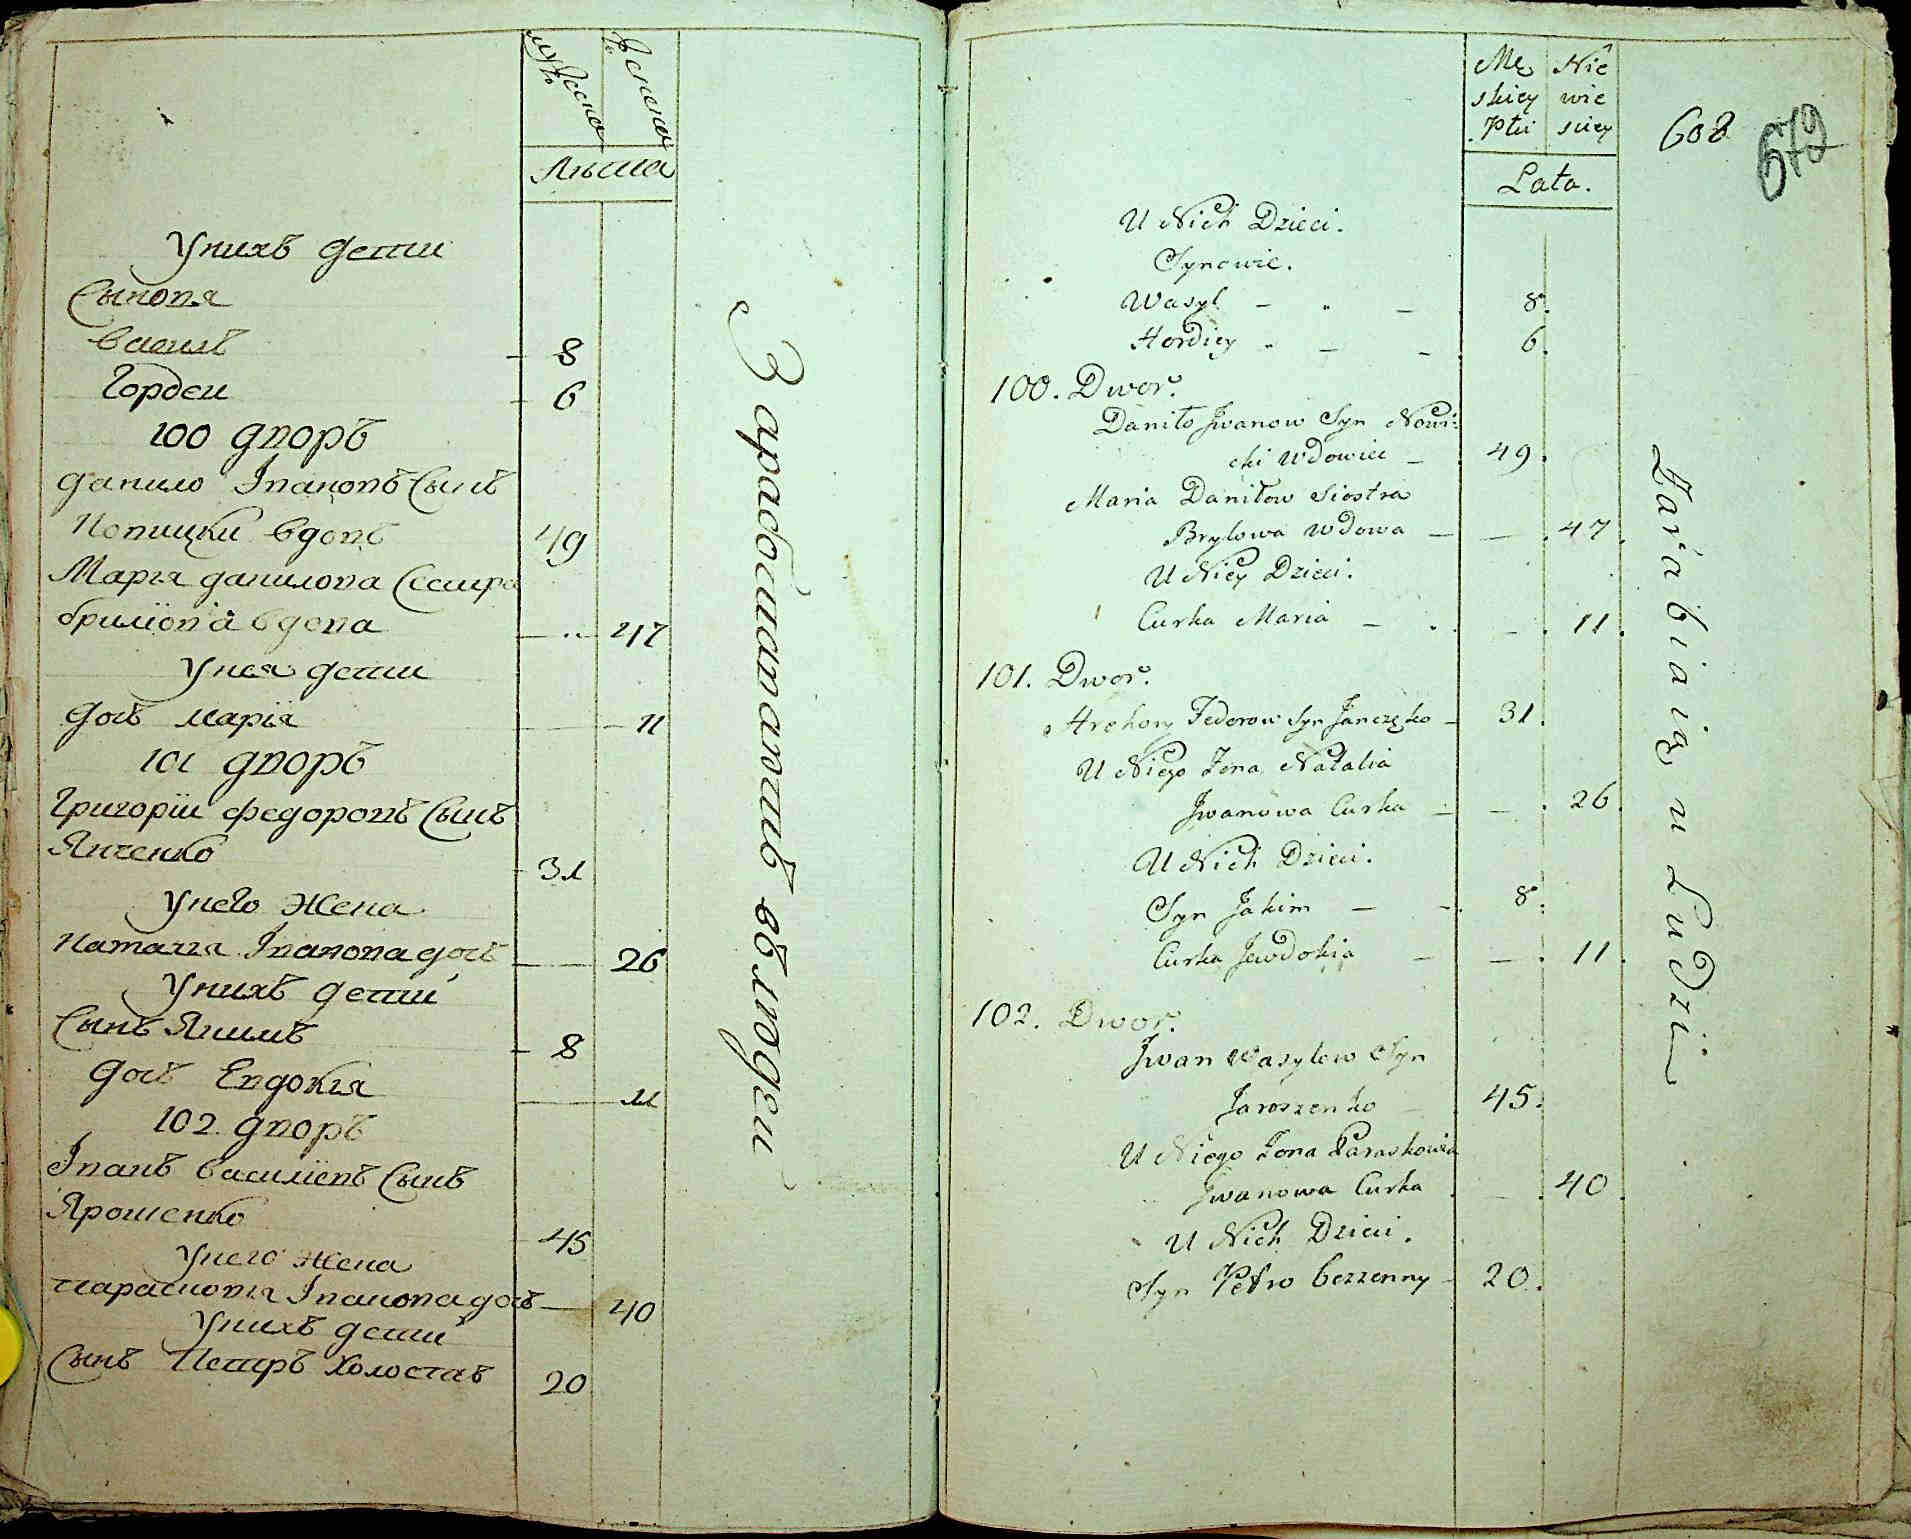 мужеска
женска
Лѣта
Унихъ дети
Сыновя
Василь 8
Гордеи 6
100 дворъ
данило Iвановъ Сынъ
Новицки вдовъ 49
Марія данилова Сестра
брилiова вдова 47
Унея дети
дочъ марiя 11
101 дворъ
Григорiи федоровъ Сынъ
Янченко 31
Унего жена
Наталiя Iванова дочъ 26
Унихъ дети
Сынъ Якимъ 8
дочъ Евдокiя 11
102 дворъ
Iванъ василiевъ Сынъ
Ярошенко 45
Унего жена
парасковiя Iванова дочъ 40
Унихъ дети
Сынъ Петръ холоставъ 20
Зарабошатаютъ въ людеи
Mę Nie
skiey wie
Płci sciey
Lata.
608
679
U Nich Dzieci.
Synowie.
Wasyl 8.
Hordiey 6.
100. Dwor.
Daniło Jwanow Syn Nowi:
cki wdowiec 49.
Maria Daniłow Siostra
Brylowa wdowa 47.
U Niey Dzieci.
Curka Maria 11.
101. Dwor.
Hrehory Fedorow Syn Janczęko 31.
U Niego Zona Natalia
Jwanowa Curka 26.
U Nich Dzieci.
Syn Jakim 8.
Curka Jewdokia 11.
102. Dwor.
Jwan Wasylow Syn
Jaroszenko 45.
U Niego Zona Paraskowia
Jwanowa Curka 40.
U Nich Dzieci.
Syn Petro bezzenny 20.
Zarabiaią u Ludzi